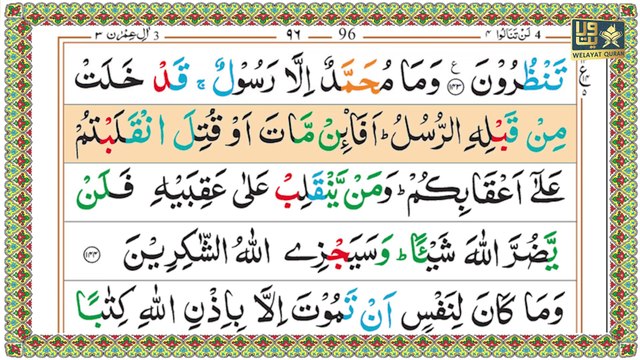 3 اٰلِ عِمْرٰن ٣
٩٦ 96
4 لَنْ تَنَالُوا ٤
WELAYAT QURAN
تَنْظُرُوْنَ ﴿۱۴۳﴾ وَمَا مُحَمَّدٌ اِلَّا رَسُوْلٌ ۚ قَدْ خَلَتْ
مِنْ قَبْلِهِ الرُّسُلُ ؕ اَفَا۟ئِنْ مَّاتَ اَوْ قُتِلَ انْقَلَبْتُمْ
عَلٰٓى اَعْقَابِكُمْ ؕ وَمَنْ يَّنْقَلِبْ عَلٰى عَقِبَيْهِ فَلَنْ
يَّضُرَّ اللّٰهَ شَيْـًٔا ؕ وَسَيَجْزِى اللّٰهُ الشّٰكِرِيْنَ ﴿۱۴۴﴾
وَمَا كَانَ لِنَفْسٍ اَنْ تَمُوْتَ اِلَّا بِاِذْنِ اللّٰهِ كِتٰبًا